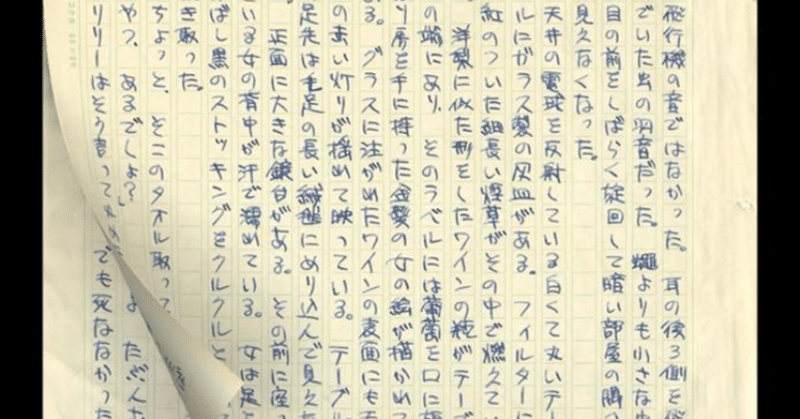 飛行機の音ではなかった。耳の後ろ側を
でいた虫の羽音だった。蠅よりも小さな
目の前をしばらく旋回して暗い部屋の隅へ
見えなくなった。
天井の電球を反射している白くて丸いテー
ルにガラス製の灰皿がある。フィルターに
紅のついた細長い煙草がその中で燃えてい
洋梨に似た形をしたワインの瓶がテーブ
の端にあり、そのラベルには葡萄を口に
り房を手に持った金髪の女の絵が描かれて
る。グラスに注がれたワインの表面にも
の赤い灯りが揺れて映っている。テーブル
足先は毛足の長い絨毯にめり込んで見えな
。正面に大きな鏡台がある。その前に座っ
いる女の背中が汗で濡れている。女は足
ばし黒のストッキングをクルクルと
き取った。
ちょっと、そこのタオル取って
やつ、あるでしょ?」
リリーはそう言って丸め
よ たぶんな
でも死ななかった